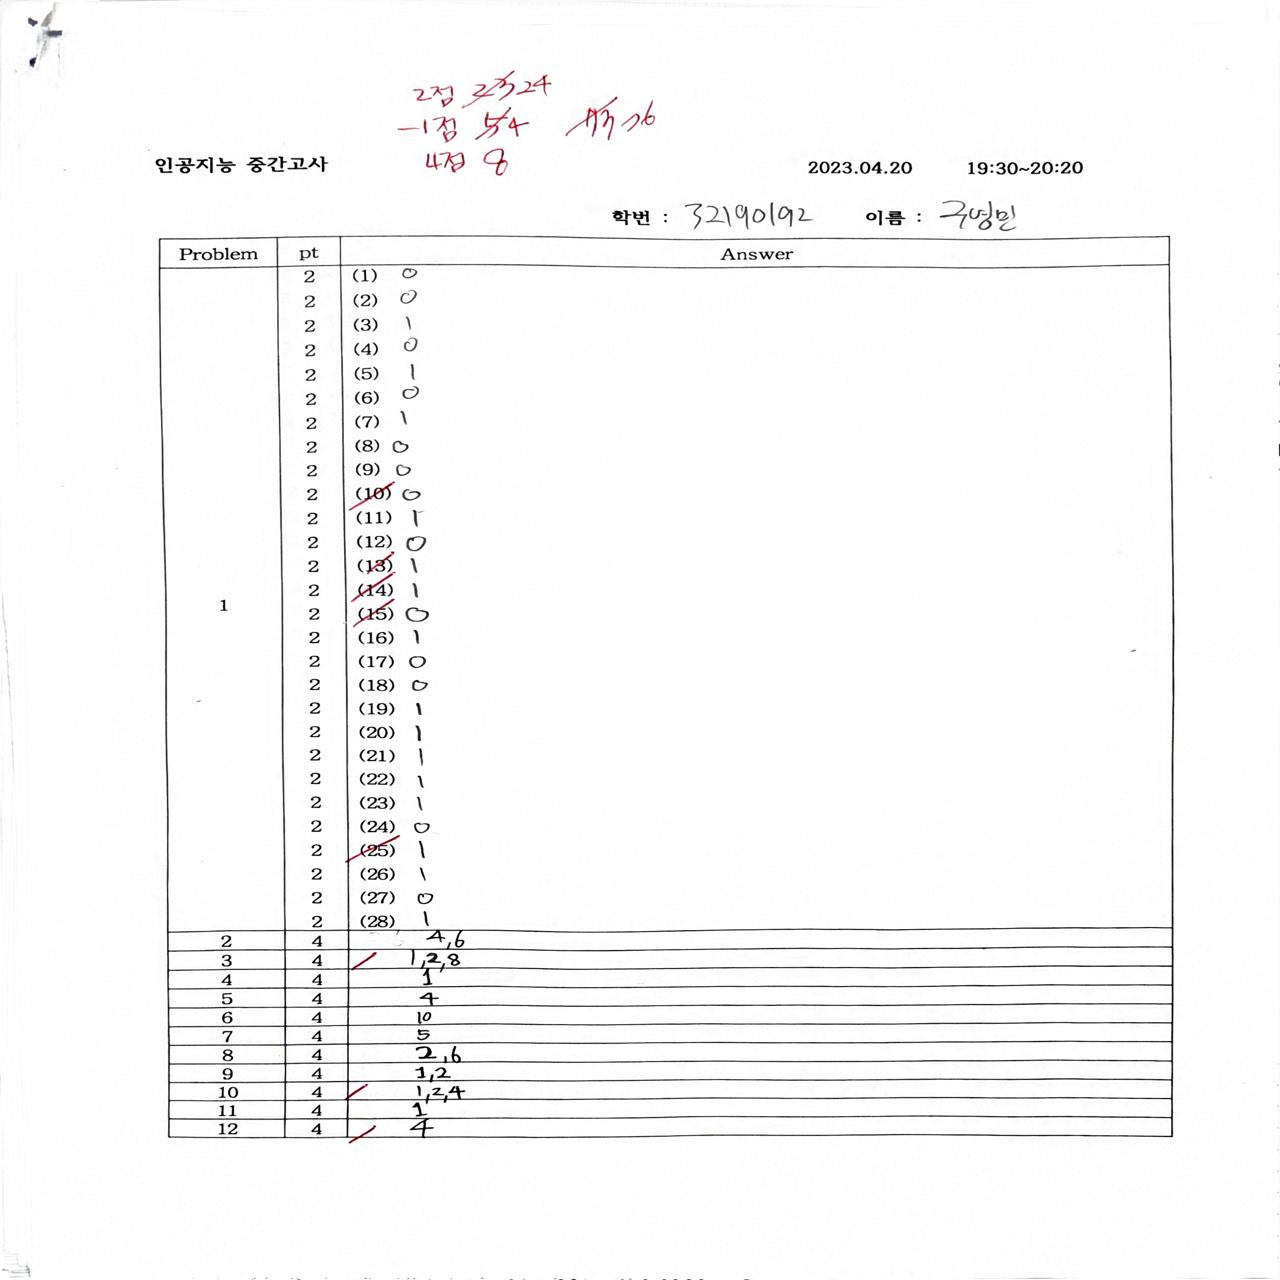 2점 23 24
-1점 5 4 76
4점 8
인공지능 중간고사 2023.04.20 19:30~20:20
학번 : 32190192 이름 : 구영민
Problem pt Answer
1
2 (1) 0
2 (2) 0
2 (3) 1
2 (4) 0
2 (5) 1
2 (6) 0
2 (7) 1
2 (8) 0
2 (9) 0
2 (10) 0
2 (11) 1
2 (12) 0
2 (13) 1
2 (14) 1
2 (15) 0
2 (16) 1
2 (17) 0
2 (18) 0
2 (19) 1
2 (20) 1
2 (21) 1
2 (22) 1
2 (23) 1
2 (24) 0
2 (25) 1
2 (26) 1
2 (27) 0
2 (28) 1
2 4 4,6
3 4 1,2,8
4 4 1
5 4 4
6 4 10
7 4 5
8 4 2,6
9 4 1,2
10 4 1,2,4
11 4 1
12 4 4